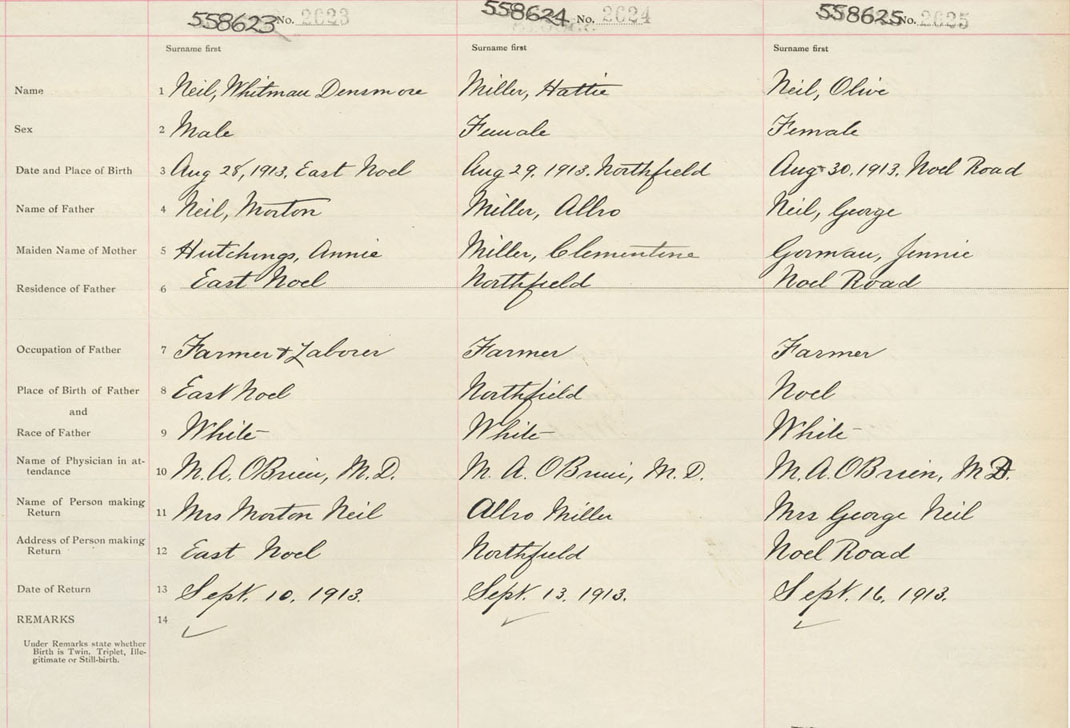 558623 No. 2623 558624 No. 2624 558625 No. 2625
Surname first Surname first Surname first
Name 1 Neil, Whitman Densmore Miller, Hattie Neil, Olive
Sex 2 Male Female Female
Date and Place of Birth 3 Aug 28, 1913, East Noel Aug 29, 1913. Northfield Aug 30, 1913, Noel Road
Name of Father 4 Neil, Morton Miller, Allro Neil, George
Maiden Name of Mother 5 Hutchings, Annie Miller, Clementine Gorman, Jennie
Residence of Father 6 East Noel Northfield Noel Road
Occupation of Father 7 Farmer & Laborer Farmer Farmer
Place of Birth of Father 8 East Noel Northfield Noel
and
Race of Father 9 White White White
Name of Physician in at-
tendance 10 M. A. O'Brien, M.D. M. A. O'Brien, M.D. M. A. O'Brien, M.D.
Name of Person making
Return 11 Mrs Morton Neil Allro Miller Mrs George Neil
Address of Person making
Return 12 East Noel Northfield Noel Road
Date of Return 13 Sept. 10, 1913. Sept. 13, 1913. Sept. 16, 1913.
REMARKS 14
Under Remarks state whether
Birth is Twin, Triplet, Ille-
gitimate or Still-birth.